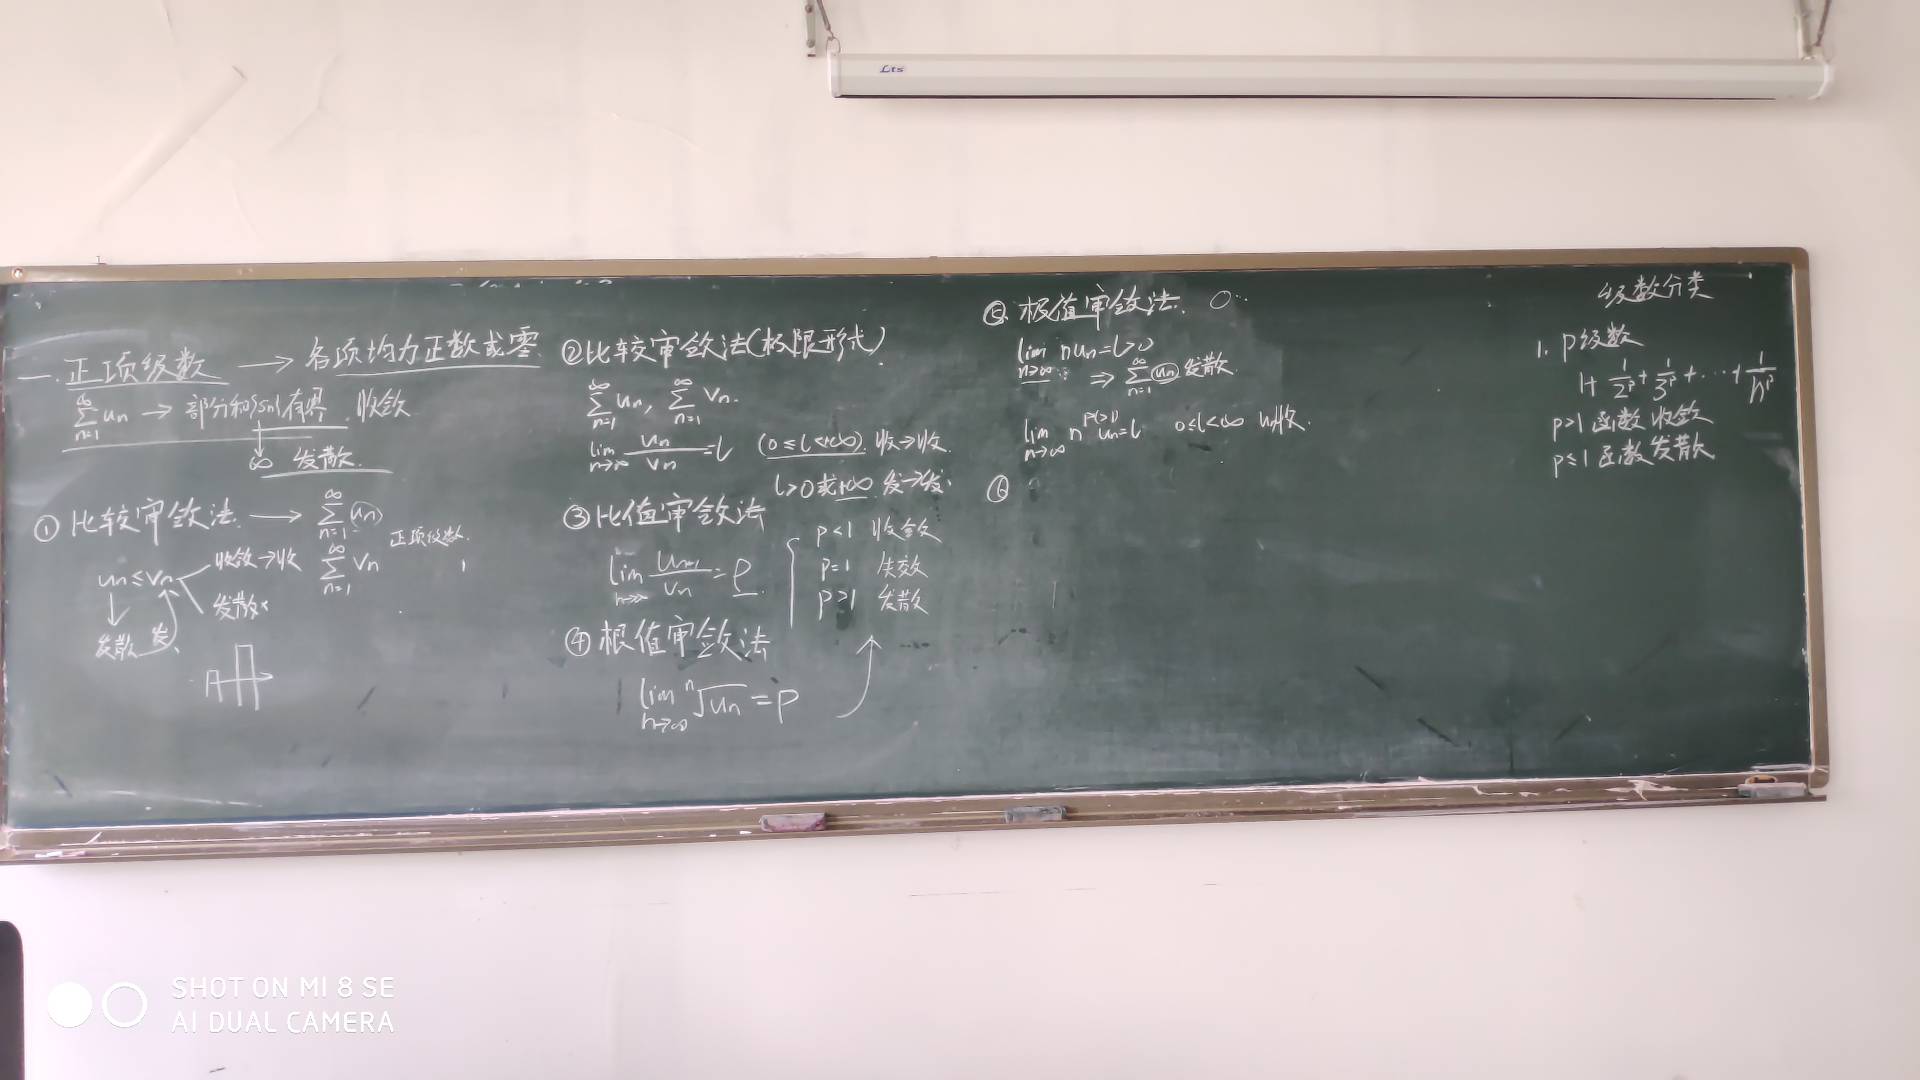 Lts
一. 正项级数 → 各项均为正数或零
∑_{n=1}^{∞} un → 部分和{sn}有界. 收敛
↓
∞ 发散.
① 比较审敛法. → ∑_{n=1}^{∞} un
∑_{n=1}^{∞} vn 正项级数.
un ≤ vn 收敛→收
发散×
发散 发
②比较审敛法(极限形式)
∑_{n=1}^{∞} un, ∑_{n=1}^{∞} vn.
lim_{n→∞} un/vn = l (0≤l<+∞). 收→收.
l>0或+∞ 发→发.
③ 比值审敛法
lim_{n→∞} un+1/vn = ρ.
ρ<1 收敛
ρ=1 失效
ρ>1 发散
④ 根值审敛法
lim_{n→∞} ⁿ√un = ρ
⑤ 极值审敛法.
lim_{n→∞} nun = l>0
⇒ ∑_{n=1}^{∞} un 发散.
lim_{n→∞} n^{p(>1)} un = l 0≤l<+∞ un收.
⑥
级数分类
1. p级数
1+ 1/2^p + 1/3^p + ··· + 1/n^p
p>1 函数收敛
p≤1 函数发散
SHOT ON MI 8 SE
AI DUAL CAMERA